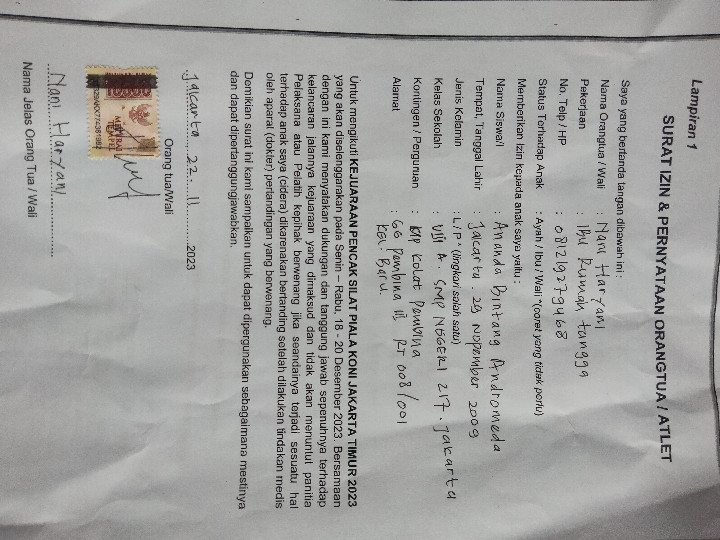 Lampiran 1
SURAT IZIN & PERNYATAAN ORANGTUA / ATLET
Saya yang bertanda tangan dibawah ini :
Nama Orangtua / Wali : Nani Haryani
Pekerjaan : Ibu Rumah tangga
No. Telp / HP : 081219279468
Status Terhadap Anak : Ayah / Ibu / Wali *(coret yang tidak perlu)
Memberikan Izin kepada anak saya yaitu :
Nama Siswa/i : Ananda Bintang Andromeda
Tempat, Tanggal Lahir : Jakarta. 29 Nopember 2009
Jenis Kelamin : L / P * (lingkari salah satu)
Kelas Sekolah : VIII A. SMP NEGERI 217. Jakarta
Kontingen / Perguruan : Kolat Pembina
Alamat : GG Pembina III RT 008/001
Kel. Baru.
Untuk mengikuti KEJUARAAN PENCAK SILAT PIALA KONI JAKARTA TIMUR 2023
yang akan diselenggarakan pada Senin – Rabu, 18 - 20 Desember 2023. Bersamaan
dengan ini kami menyatakan dukungan dan tanggung jawab sepenuhnya terhadap
kelancaran jalannya kejuaraan yang dimaksud dan tidak akan menuntut panitia
Pelaksana atau Pelatih kepihak berwenang jika seandainya terjadi sesuatu hal
terhadap anak saya (cidera) dikarenakan bertanding setelah dilakukan tindakan medis
oleh aparat (dokter) pertandingan yang berwenang.
Demikian surat ini kami sampaikan untuk dapat dipergunakan sebagaimana mestinya
dan dapat dipertanggungjawabkan.
Jakarta 22. 11 2023
Orang tua/Wali
10000
METERAI
TEMPEL
Nani Haryani
Nama Jelas Orang Tua / Wali